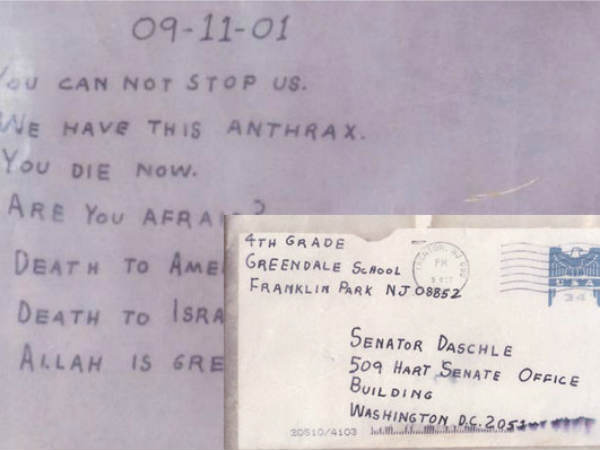 09-11-01
YOU CAN NOT STOP US.
WE HAVE THIS ANTHRAX.
YOU DIE NOW.
ARE YOU AFRA ?
DEATH TO AME
DEATH TO ISRA
ALLAH IS GRE
4TH GRADE
GREENDALE SCHOOL
FRANKLIN PARK NJ 08852
PM
USA
34
SENATOR DASCHLE
509 HART SENATE OFFICE
BUILDING
WASHINGTON D.C. 205
20510/4103